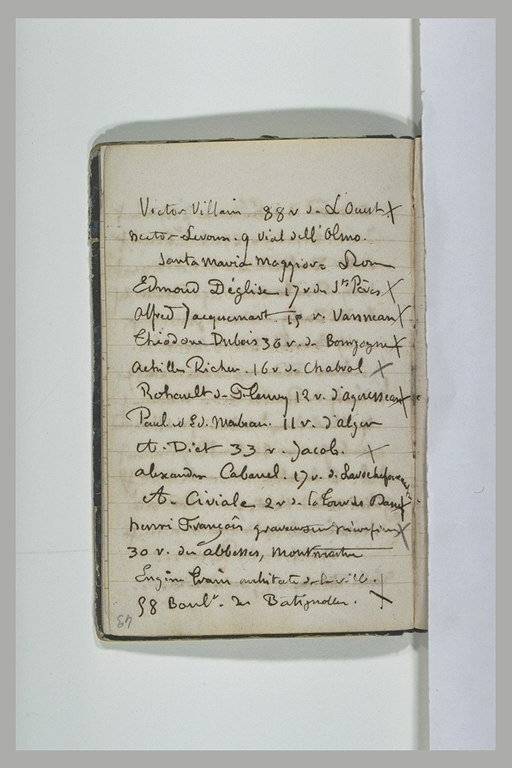 Victor Villain 88 r de L'Ouest X
hector Leroux. 9 vial dell' Olmo.
Santa Maria Maggiore Rom
Edmond Déglise 17 r des Sts Pères X
Alfred Jacquemart. 15 r. Vanneau X
Théodore Dubois 30 r. de Bourgogne X
Achilles Richer. 16 r de Chabrol X
Rohault de Fleury 12 r. d'aguesseau X
Paul. et Ed. 11 r. d'alger
A. Diet 33 r. Jacob. X
Alexandre Cabanel. 17 r. de Larochefoucauld
A. Civiale 2 r de la Tour des Dames X
henri François graveur X
30 r. des abbesses, Montmartre
Eugène architecte de la ville. X
58 Boulr. des Batignolles. X
43